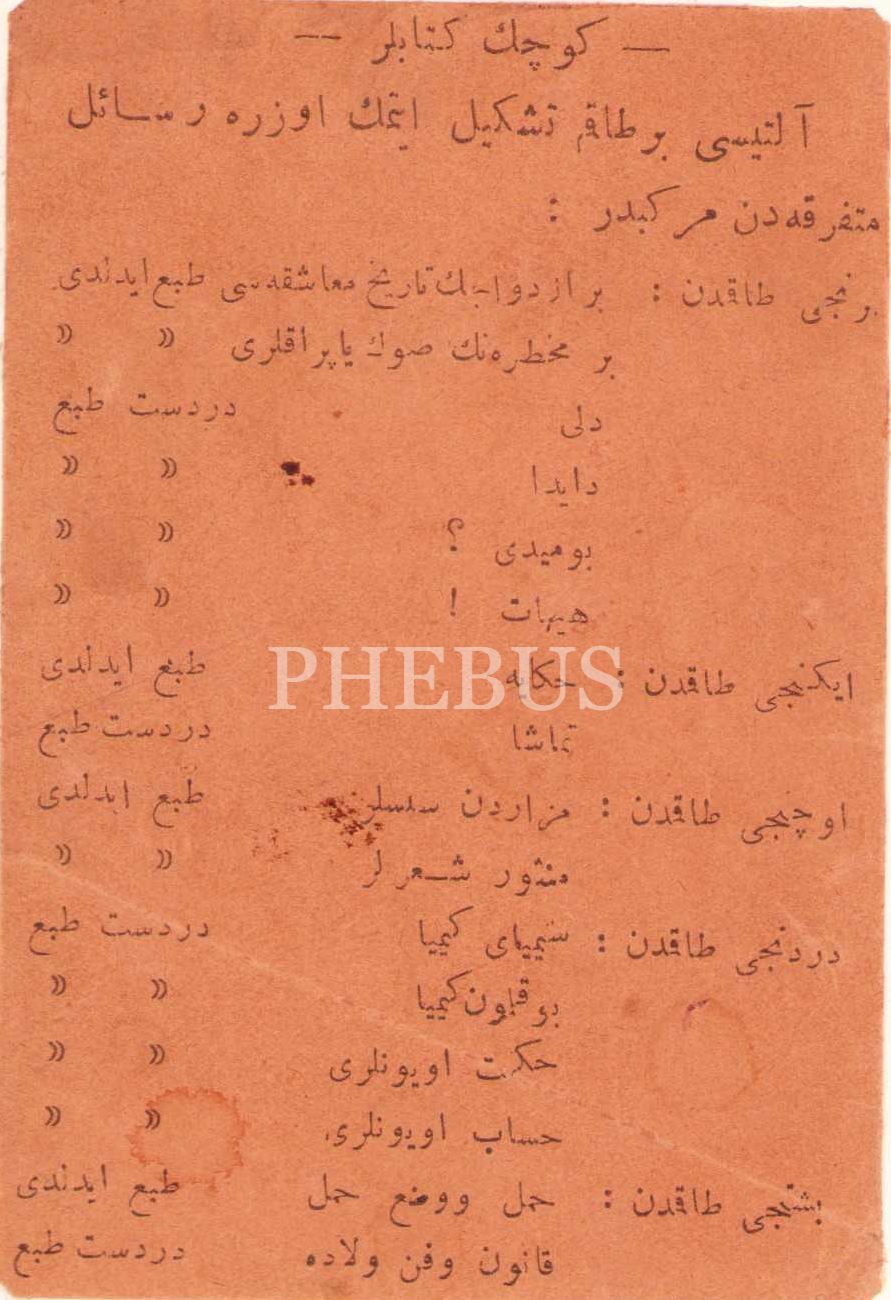 — كوچك كتابلر —
آلتیسی بر طاقم تشكیل ایتمك اوزره رسائل
متفرقه‌دن مركبدر :
برنجی طاقدن : بر ازدواجك تاریخ معاشقه‌سی طبع ایدلندی
بر مخطره‌نك صوك یاپراقلری » »
دلی دردست طبع
دایدا » »
بومیدی ؟ » »
هیهات ! » »
ایكنجی طاقدن : حكایه طبع ایدلندی
تماشا دردست طبع
اوچنجی طاقدن : مزاردن سسلر طبع ایدلندی
منثور شعرلر » »
دردنجی طاقدن : سیمیای كیمیا دردست طبع
بوقلمون كیمیا » »
حكمت اویونلری » »
حساب اویونلری » »
بشنجی طاقدن : حمل ووضع حمل طبع ایدلندی
قانون وفن ولاده دردست طبع
PHEBUS